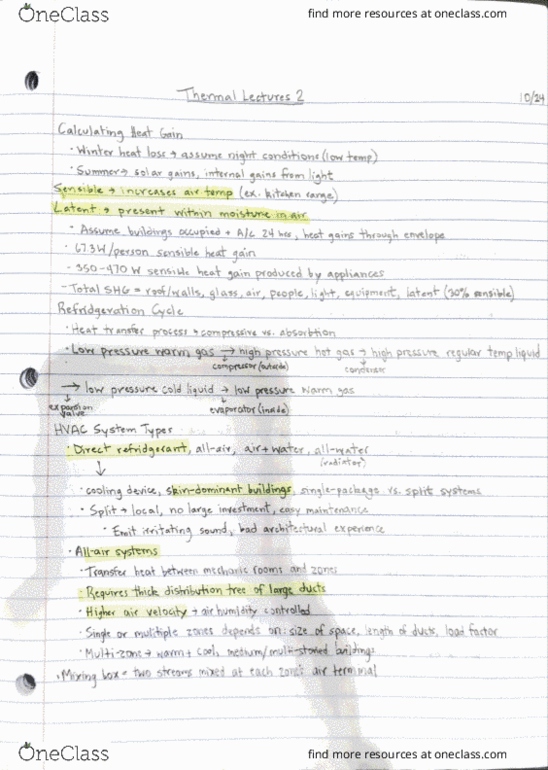 OneClass
find more resources at oneclass.com
Thermal Lectures 2
10/24
Calculating Heat Gain
· Winter heat loss → assume night conditions (low temp)
· Summer → solar gains, internal gains from light
Sensible → increases air temp (ex. kitchen range)
Latent → present within moisture in air
· Assume buildings occupied + A/C 24 hrs, heat gains through envelope
· 67.3 W/person sensible heat gain
- 350-470 W sensible heat gain produced by appliances
- Total SHG = roof/walls, glass, air, people, light, equipment, latent (30% sensible)
Refridgeration Cycle
· Heat transfer process → compressive vs. absorbtion
· Low pressure warm gas → high pressure hot gas → high pressure regular temp liquid
compressor (outside)
condenser
→ low pressure cold liquid → low pressure warm gas
expansion valve
evaporator (inside)
HVAC System Types
· Direct refridgerant, all-air, air + water, all-water
(radiator)
· cooling device, skin-dominant buildings, single-package vs. split systems
· Split → local, no large investment, easy maintenance
· Emit irritating sound, bad architectural experience
· All-air systems
· Transfer heat between mechanic rooms and zones
· Requires thick distribution tree of large ducts
· Higher air velocity + air humidity controlled
· Single or multiple zones depends on: size of space, length of ducts, load factor
· Multi-zone → warm + cool, medium/multi-storied buildings
· Mixing box = two streams mixed at each zone's air terminal
OneClass
find more resources at oneclass.com